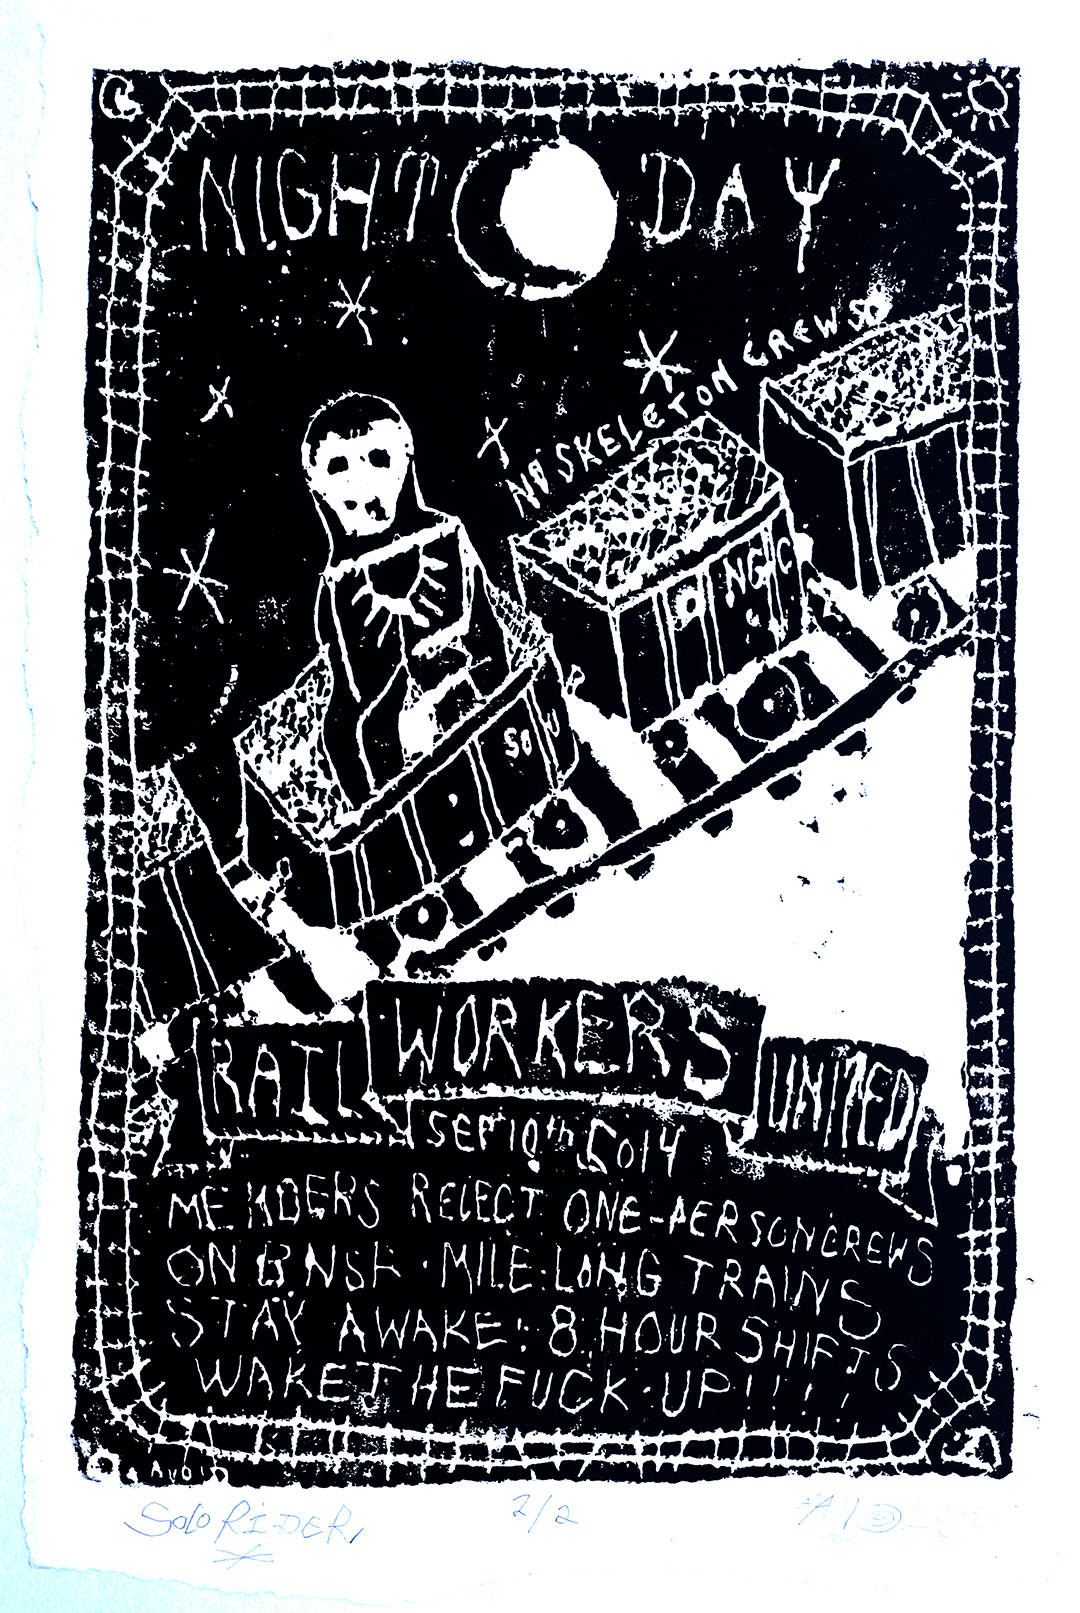 NIGHT DAY
NO SKELETON CREWS
NG C
SO U R
RAIL WORKERS UNITED
SEP 10th 2014
MEMBERS REJECT ONE-PERSON CREWS
ON BNSF · MILE·LONG TRAINS
STAY AWAKE! 8 HOUR SHIFTS
WAKE THE FUCK·UP!!!!
AVOID
SOLO RIDER
2/2